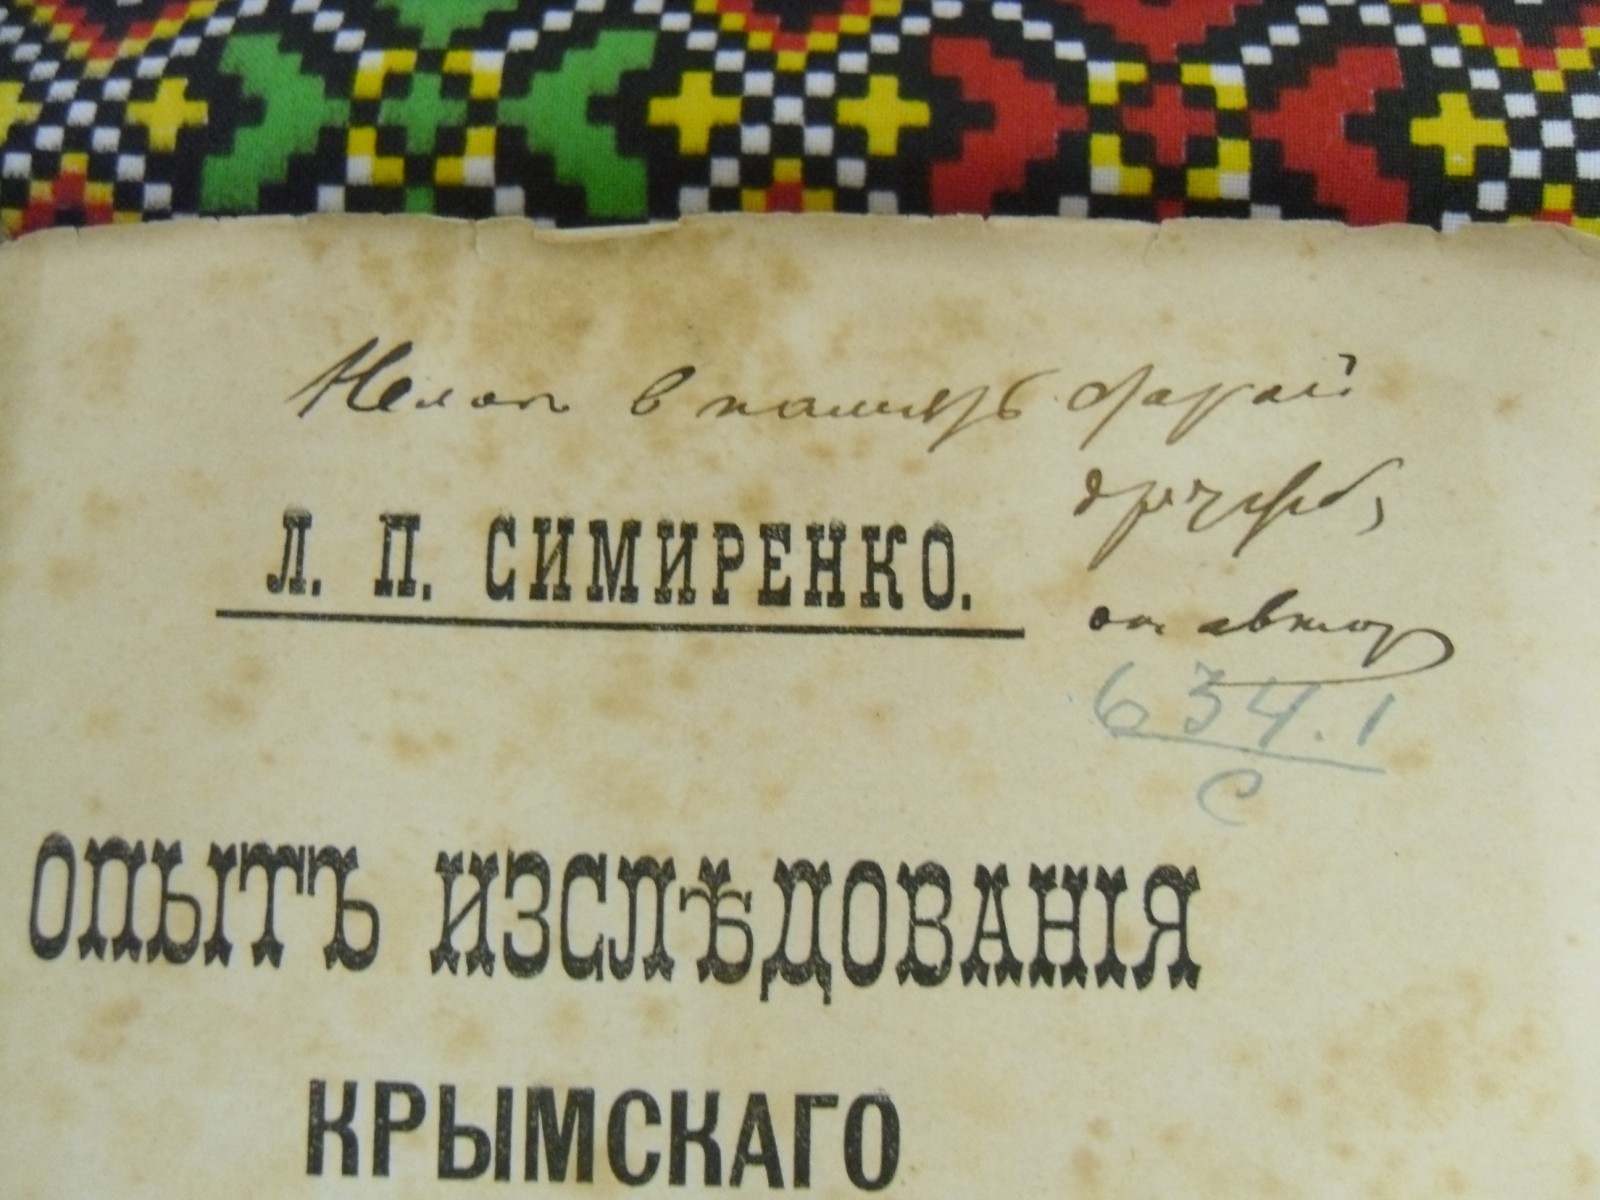 в память старой
дружбы,
от автора
Л. П. СИМИРЕНКО.
634.1
С
ОПЫТЪ ИЗСЛѢДОВАНІЯ
КРЫМСКАГО